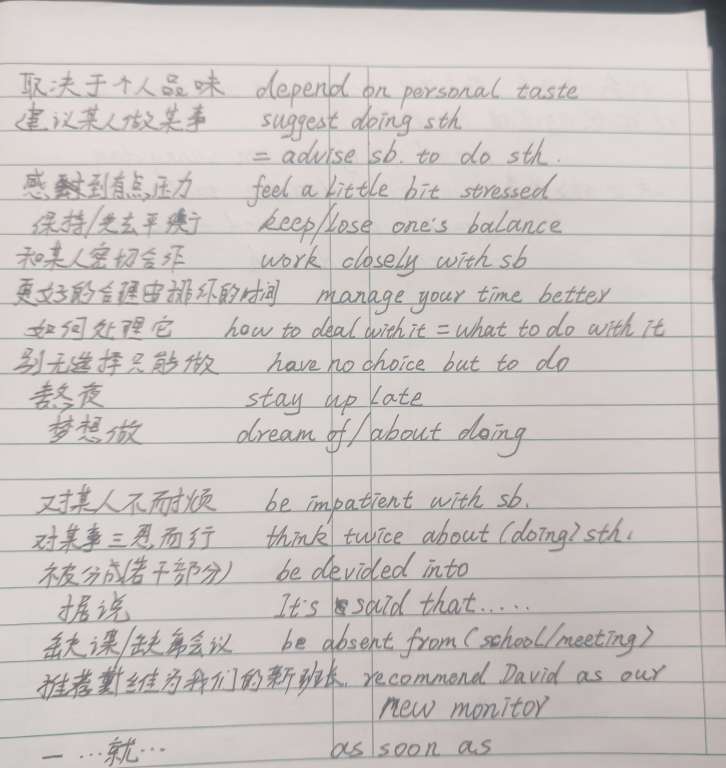 取决于个人品味 depend on personal taste
建议某人做某事 suggest doing sth
= advise sb. to do sth.
感到有点压力 feel a little bit stressed
保持/失去平衡 keep/lose one's balance
和某人密切合作 work closely with sb
更好的合理安排的时间 manage your time better
如何处理它 how to deal with it = what to do with it
别无选择只能做 have no choice but to do
熬夜 stay up late
梦想做 dream of/about doing
对某人不耐烦 be impatient with sb.
对某事三思而行 think twice about (doing) sth.
被分成(若干部分) be devided into
据说 It's said that.....
缺课/缺席会议 be absent from (school/meeting)
推荐戴维为我们的新班长. recommend David as our
new monitor
一…就… as soon as